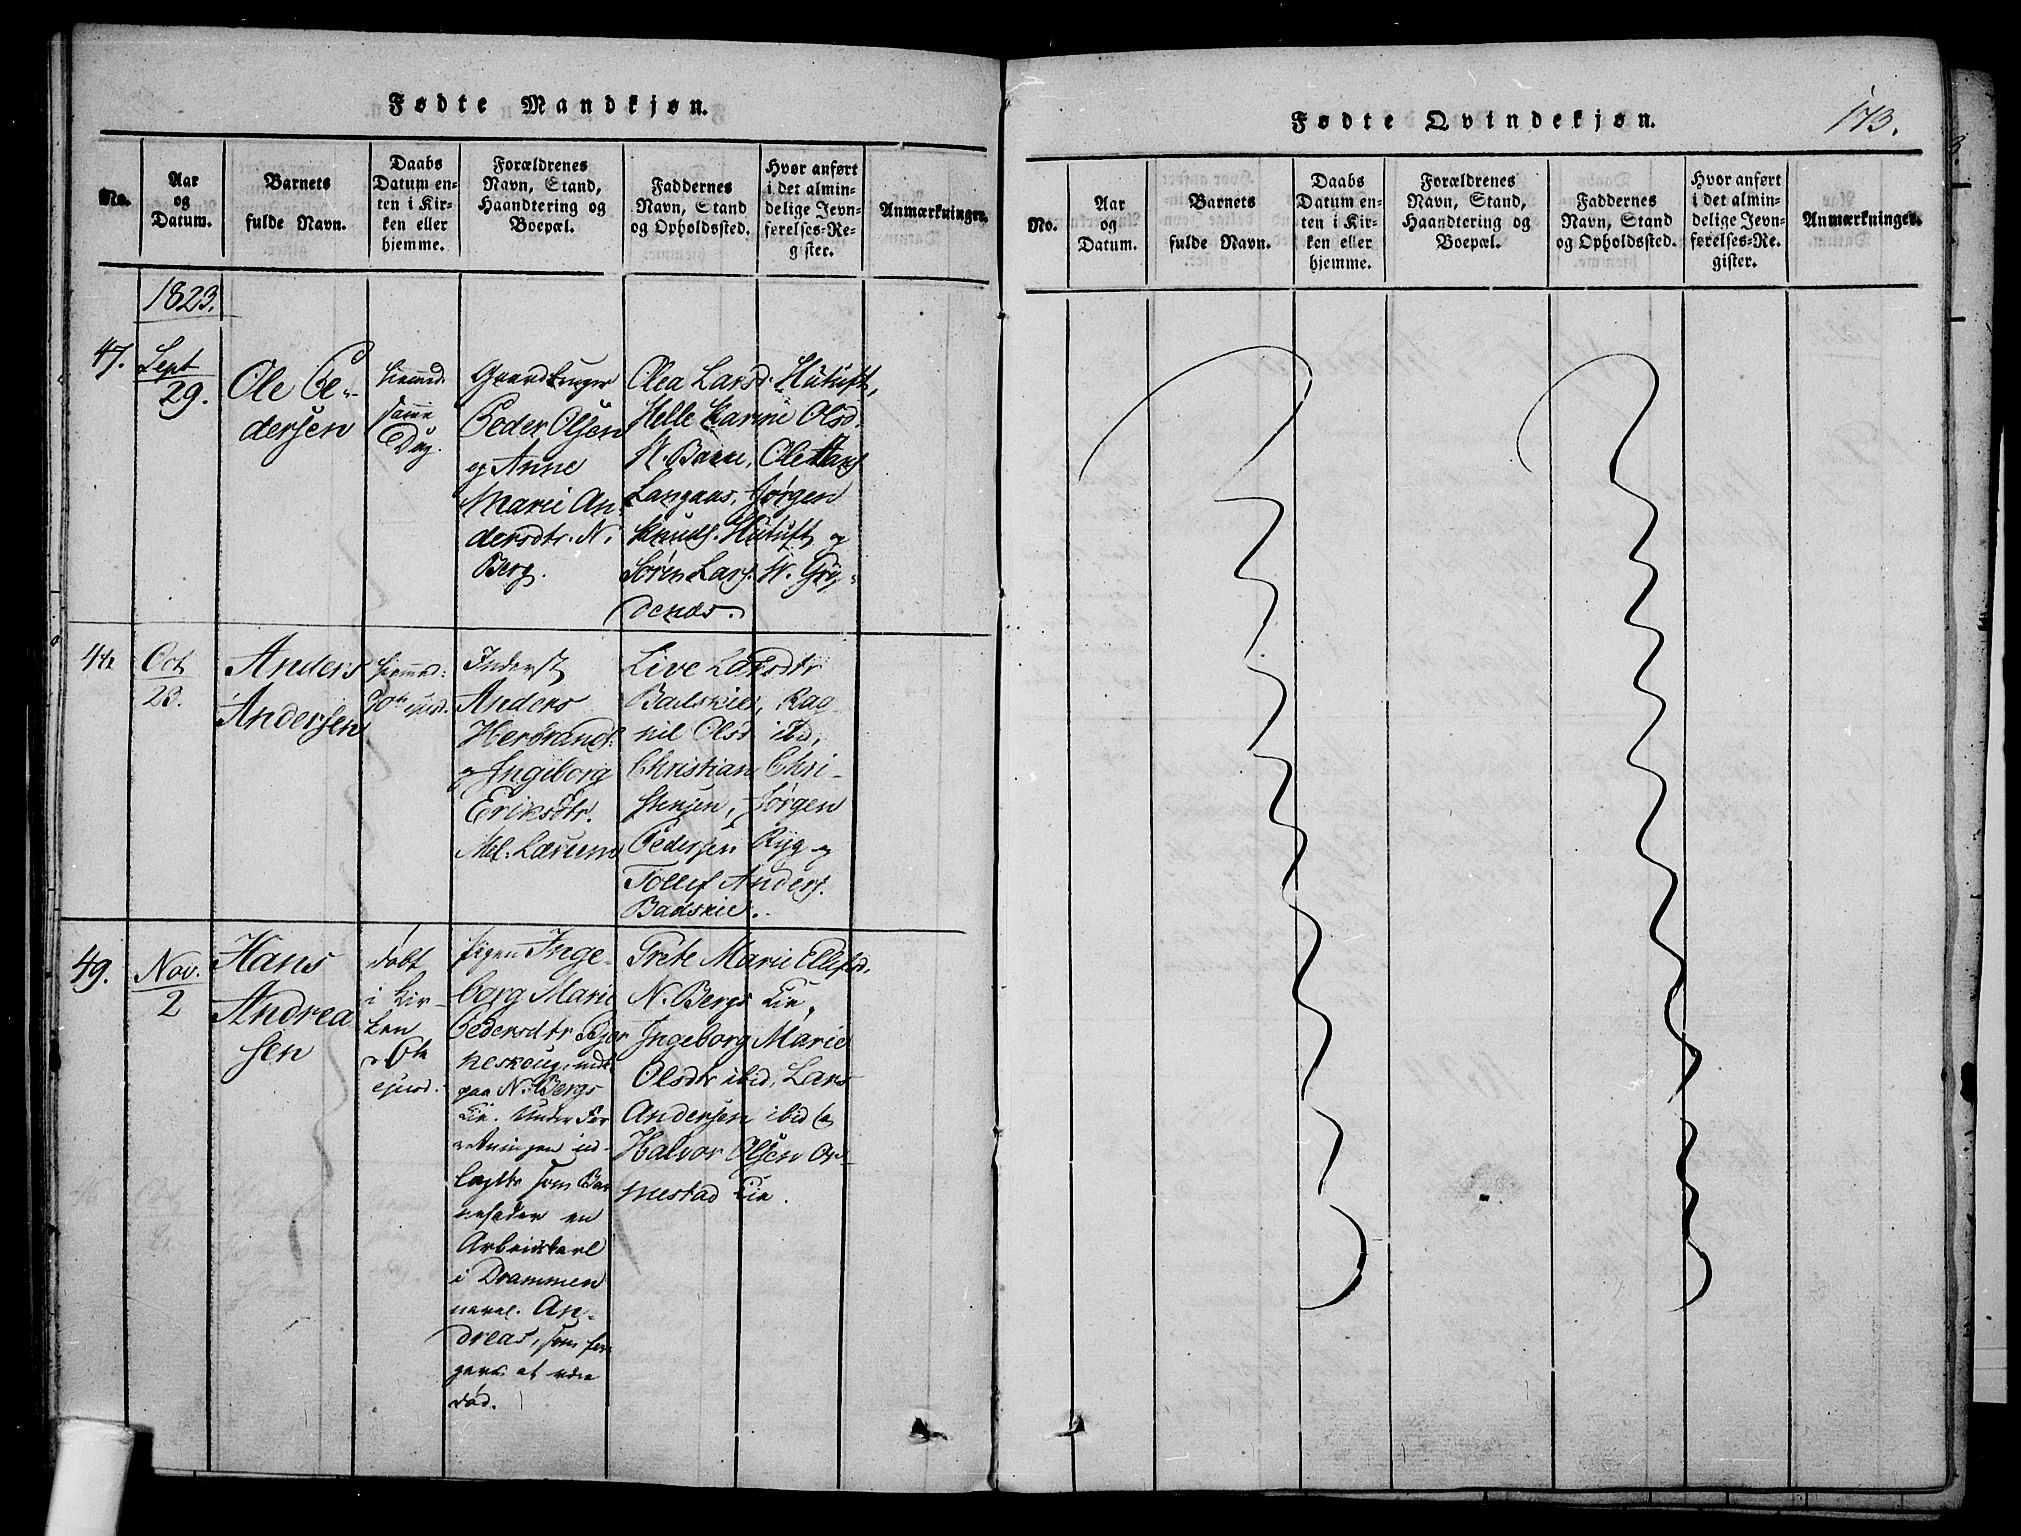 Fødte Mandkjøn.
No.
Aar
og
Datum.
Barnets
fulde Navn.
Daabs
Datum en-
ten i Kir-
ken eller
hjemme.
Forældrenes
Navn, Stand,
Haandtering og
Boepæl.
Faddernes
Navn, Stand
og Opholdssted.
Hvor anført
i det almin-
delige Jevn-
førelses-Re-
gister.
Anmærkninger.
1823.
47.
Sept
29.
Ole Pe-
dersen
hiemmed.
samme
Dag.
Gaardbruger
Peder Olsen
og Anne
Marie An-
dersdtr. N.
Berg.
Olea Larsd. Hutuft,
Helle Karine Olsd.
N. Berg, Ole Hans
Langaas, Jørgen
Knuds. Hutuft og
Søren Lars. N. Gry-
denæs.
Oct
23.
Anders
Andersen
hiemmed.
ejusd.
Inderst
Anders
Herbrands.
og Ingeborg
Eriksdtr.
Mel. Lærum
Live Larsdtr
Badskie, Rag-
nil Olsd ibd,
Christian Chri-
stensen, Jørgen
Pedersen Ryg og
Tollef Anders.
Badskie.
49.
Nov.
2
Hans
Andrea
sen
døbt
i Kir-
ken
ejusd.
pigen Inge-
borg Marie
Pedersdtr Bjer
keskoug, inds.
paa N. Bergs
Eie. Under For
retningen ud-
lagte som Bar
nefader en
Arbeidskarl
i Drammen
navnl. An-
dreas, som for
gives at være
død.
Grete Marie Ellefsd.
N. Bergs Eie,
Ingeborg Marie
Olsdtr ibid, Lars
Andersen ibid og
Halvor Olsen Op-
nestad Eie.
Fødte Qvindekjøn.
173.
No.
Aar
og
Datum.
Barnets
fulde Navn.
Daabs
Datum en-
ten i Kir-
ken eller
hjemme.
Forældrenes
Navn, Stand,
Haandtering og
Boepæl.
Faddernes
Navn, Stand
og Opholdssted.
Hvor anført
i det almin-
delige Jevn-
førelses-Re-
gister.
Anmærkninger.